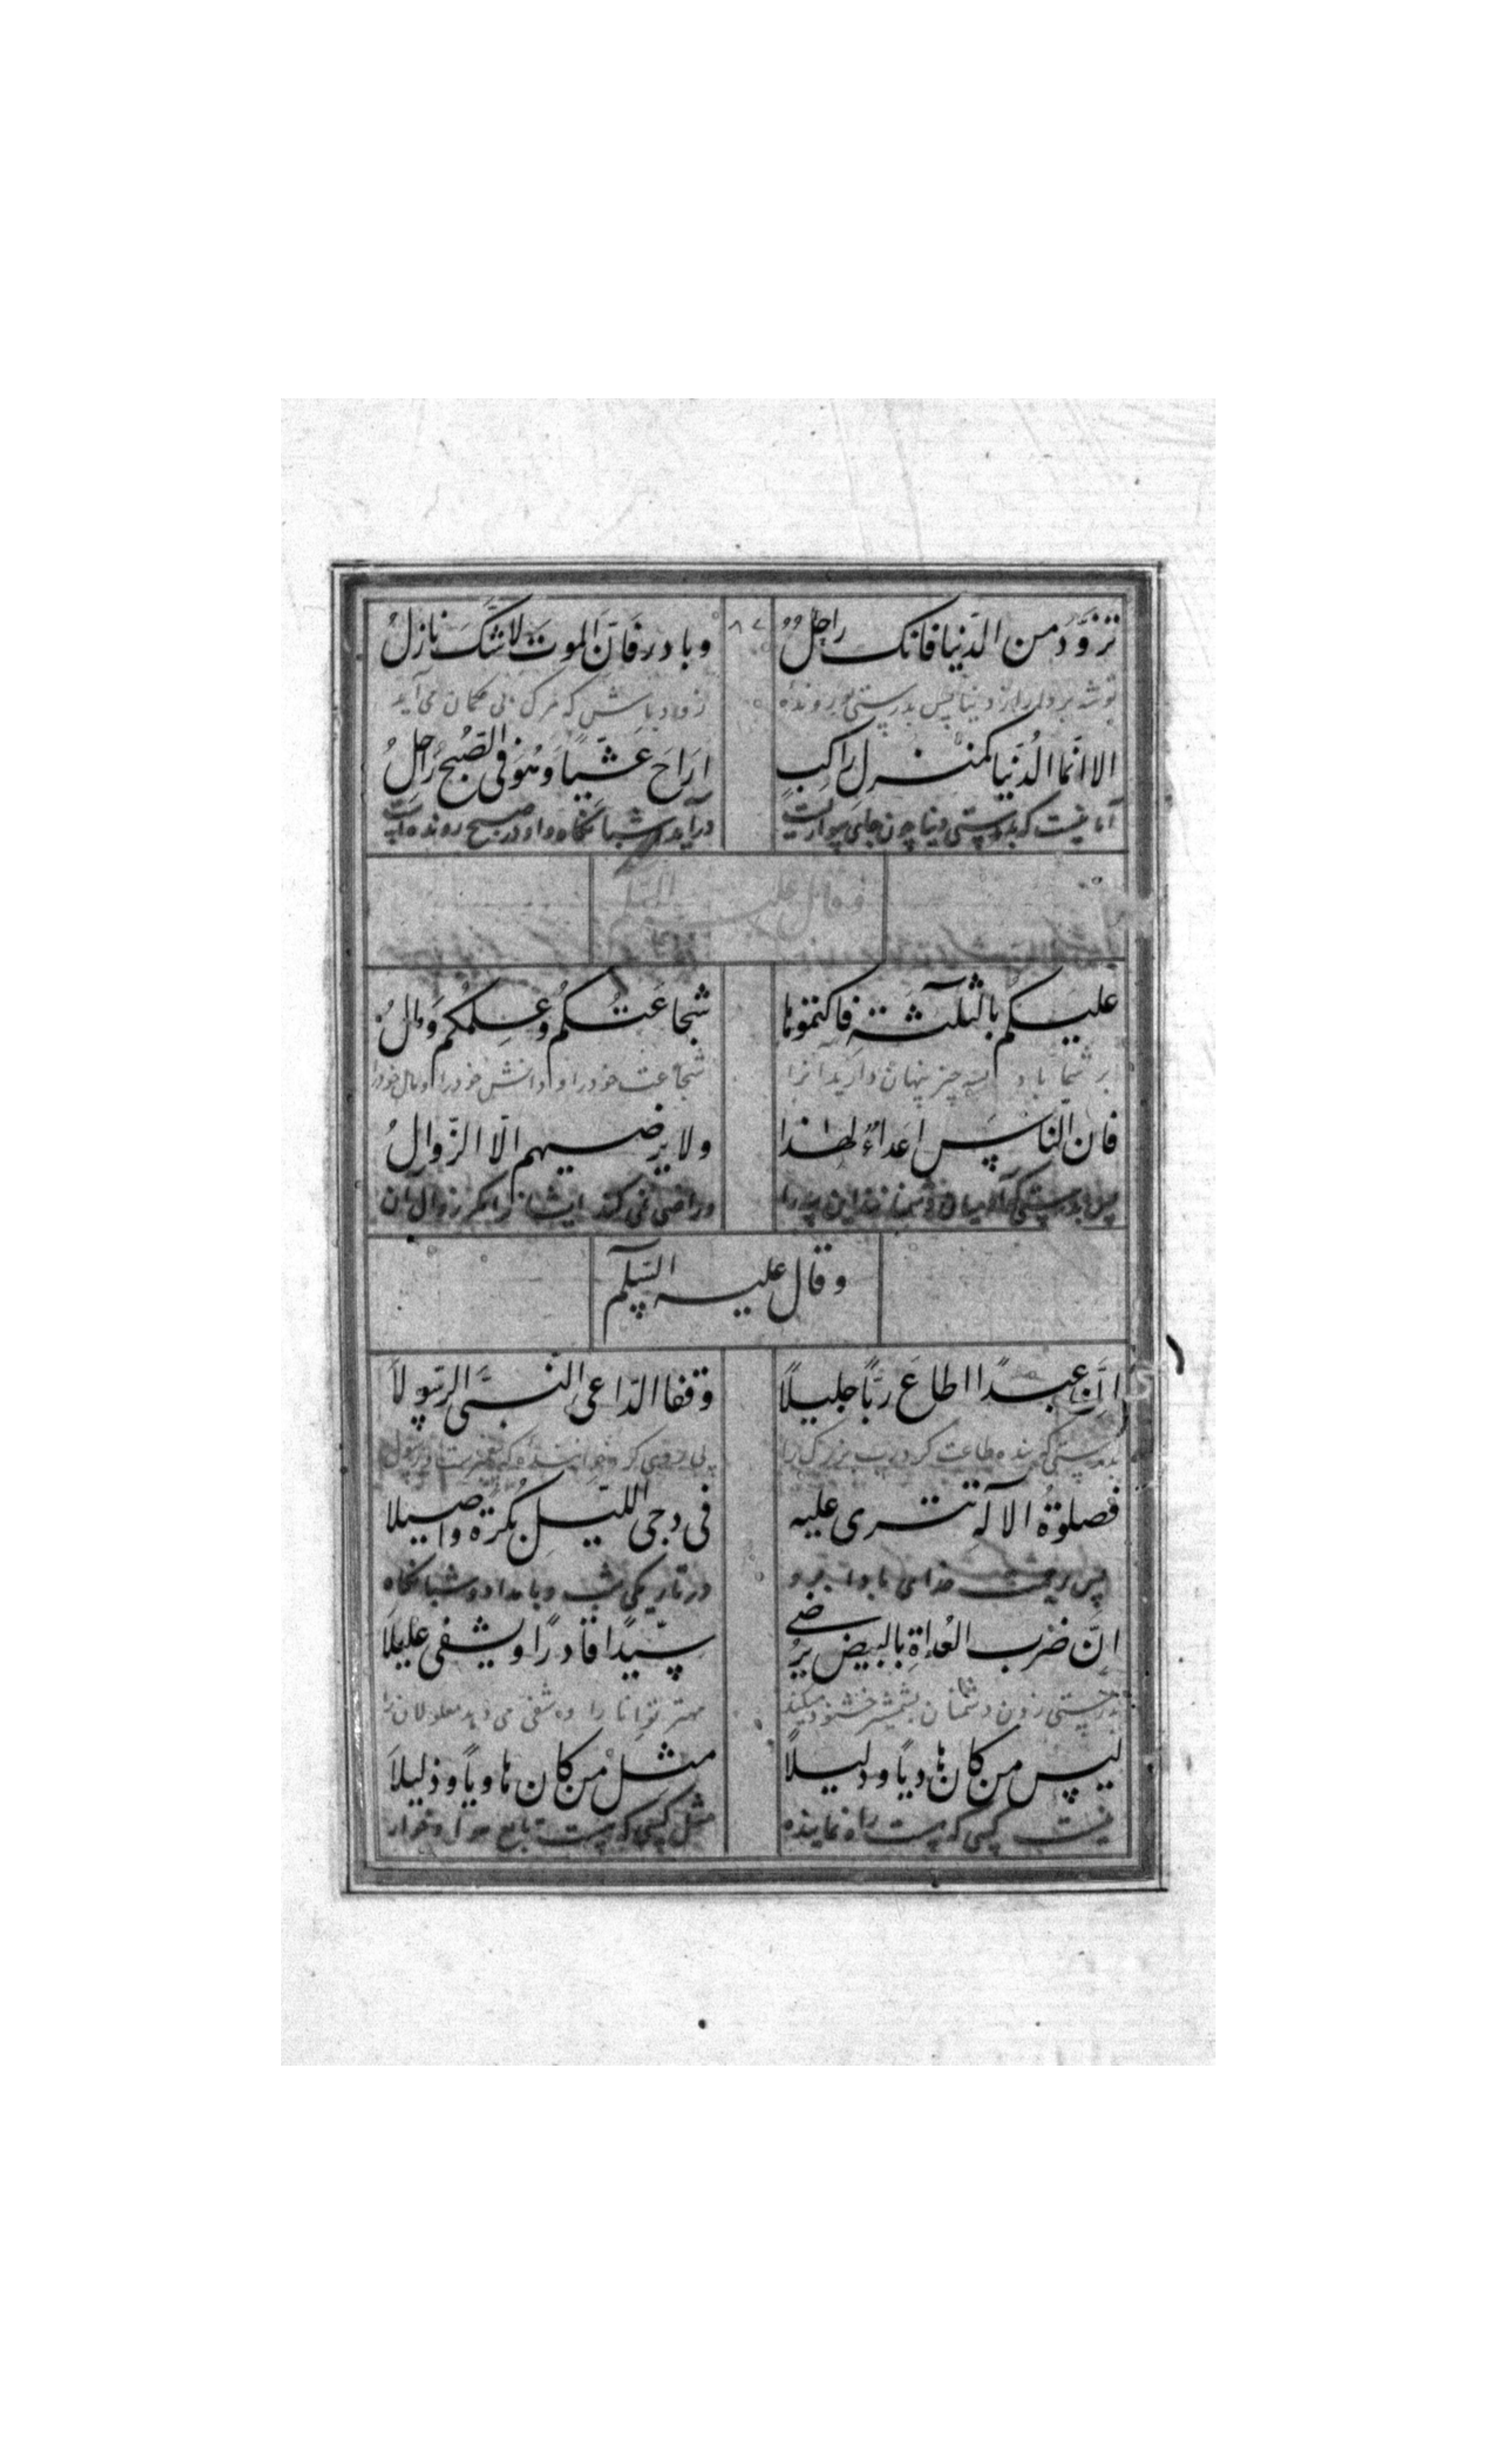 تزوَّدْ من الدّنيا فانك راحِلُ وبادر فَانَّ الموتَ لا شَّكَ نازلُ
توشه بردار از دنیا پس بدرستی تو رونده زود باش که مرک بی کمان می آید
الا انّما الدُنّيا كمنْزل راكبٍ اَرَاحَ عَشّيًا وهُوَ فى الصّبح رُاحلُ
آکاه نیست که بدرستی دنیا چون جای سواریست درآید شبانکاه و او در صبح رونده است
وقال عليه السّلم
عليكم بالثّلثة فاكتموها شجاعَتُكم وعِلمُكم وَمالُ
بر شما باد سه چیز پنهان دارید آنرا شجاعت خود را و دانش خود را و مال خود را
فان النّاس اعداءٌ لهذا ولا يرضيهم الّا الزّوالُ
پس بدرستی که آدمیان دشمنانند این را و راضی نمی کند ایشان را مکر زوال آن
وقال عليه السّلم
انَّ عبدًا اطاعَ ربًّا جليلًا وقفا الدّاعى النّبىَّ الرّسولَا
بدرستی که بنده طاعت کرد رب بزرک را پی روی کرد خواننده که پیغمبرست و رسول
فصلوةُ الاله تترى عليه فى دجى اللّيل بُكرَةً واصيلا
پس رحمت خدای باد بر او در تاریکی شب و بامداد و شبانکاه
انّ ضَرب العُداةِ بالبيض يُرضى سيّدًا قادرًا ويشفى عليلَا
بدرستی زدن دشمنان بشمشیر خشنود میکند مهتر توانا را و شفی می دهد معلولان را
ليس من كان هاديًا ودليلًا مثل مْن كان هاويًا وذليلَا
نیست کسی که هست راه نماینده مثل کسی که هست تابع هوا و خوار